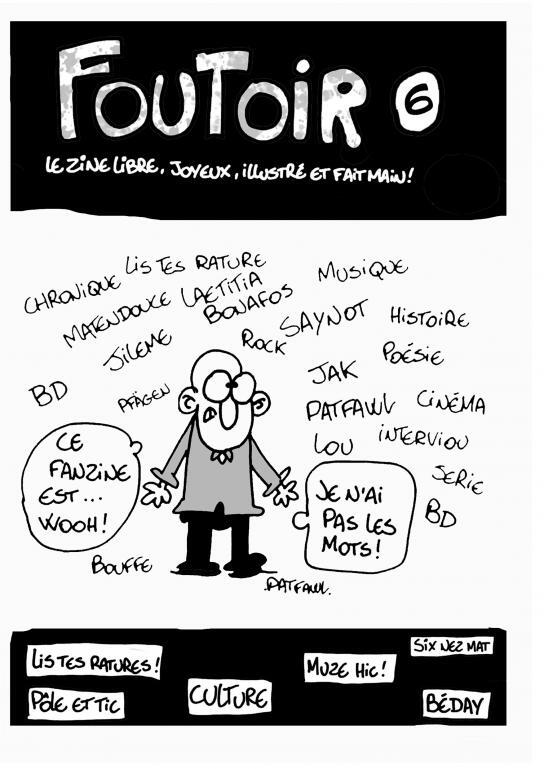 FOUTOIR 6
LE ZINE LIBRE, JOYEUX, ILLUSTRÉ ET FAIT MAIN!
CHRONIQUE
LIS TES RATURE
MUSIQUE
MATENDOUCE
LAETITIA
BONAFOS
JILEME
ROCK
SAYNOT
HISTOIRE
BD
PFÄGEN
JAK
POÉSIE
PATFAWL
CINÉMA
LOU
INTERVIOU
SERIE
BD
CE
FANZINE
EST...
WOOH!
JE N'AI
PAS LES
MOTS!
BOUFFE
PATFAWL.
LIS TES RATURES!
PÔLE ET TIC
CULTURE
MUZE HIC!
SIX NEZ MAT
BÉDAY